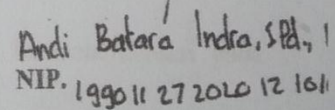 Andi Batara Indra, S.Pd.,
NIP. 1990 11 27 2020 12 1011